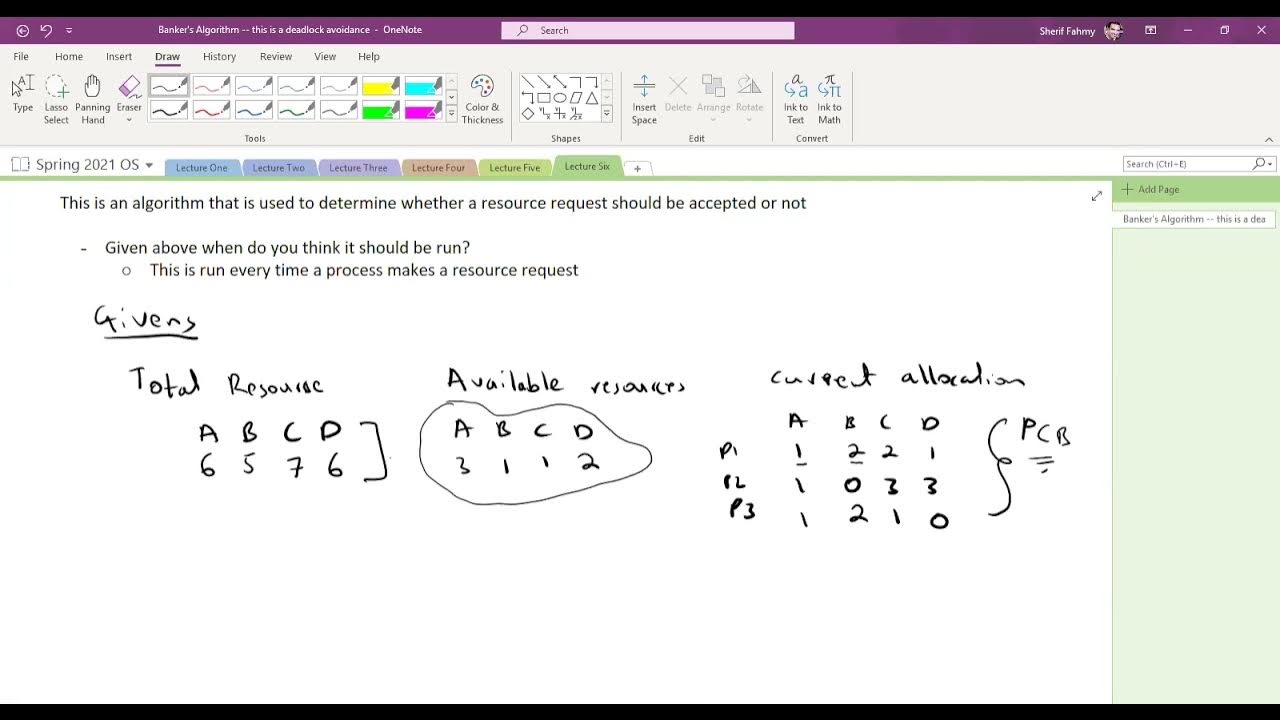 Banker's Algorithm -- this is a deadlock avoidance - OneNote
Search
Sherif Fahmy
File Home Insert Draw History Review View Help
Type
Lasso Select
Panning Hand
Eraser
Color & Thickness
Insert Space
Delete
Arrange
Rotate
Ink to Text
Ink to Math
Tools Shapes Edit Convert
Spring 2021 OS
Lecture One Lecture Two Lecture Three Lecture Four Lecture Five Lecture Six
Search (Ctrl+E)
Add Page
Banker's Algorithm -- this is a dea
This is an algorithm that is used to determine whether a resource request should be accepted or not
- Given above when do you think it should be run?
o This is run every time a process makes a resource request
Givens
Total Resourse
A B C D
6 5 7 6
Available resources
A B C D
3 1 1 2
current allocation
A B C D
P1 1 2 2 1
P2 1 0 3 3
P3 1 2 1 0
PCB